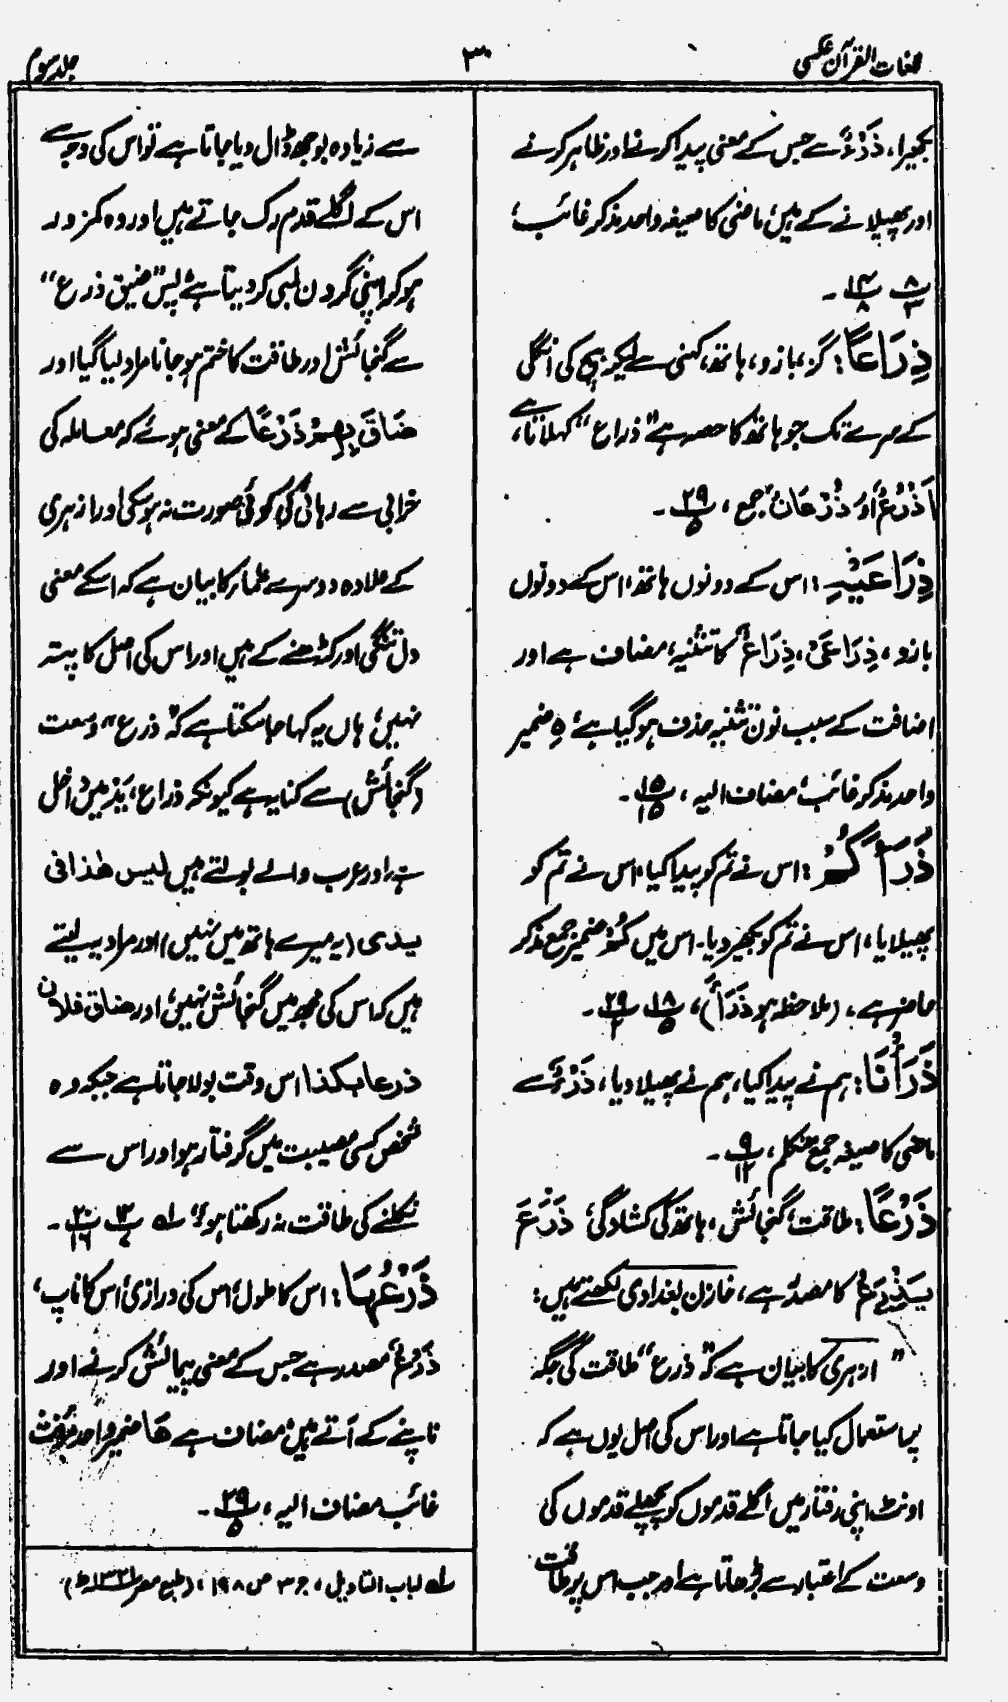 لغات القرآن عکسی
۳۰
جلد سوم
بکھیرا، ذَرْءٌ سے جس کے معنی پیدا کرنے اور ظاہر کرنے
اور پھیلانے کے ہیں، ماضی کا صیغہ واحد مذکر غائب،
۸/۳ ۱۴/۸۔
ذِرَاعًا: گز، بازو، ہاتھ، کہنی سے لیکر بیچ کی انگلی
کے سرے تک جو ہاتھ کا حصہ ہے "ذراع" کہلاتا ہے،
اَذْرُعٌ اور ذُرْعَانٌ جمع، ۲۹/۵۔
ذِرَاعَيْهِ: اس کے دونوں ہاتھ، اس کے دونوں
بازو، ذِرَاعَیْ، ذِرَاعٌ کا تثنیہ، مضاف ہے اور
اضافت کے سبب نون تثنیہ حذف ہو گیا ہے، ہِ ضمیر
واحد مذکر غائب، مضاف الیہ، ۱۵/۱۵۔
ذَرَأَكُمْ: اس نے تم کو پیدا کیا، اس نے تم کو
پھیلایا، اس نے تم کو بکھیر دیا۔ اس میں کُمْ ضمیر جمع مذکر
حاضر ہے، (ملاحظہ ہو ذَرَأَ)، ۱۸/۵ ۲۹/۲۔
ذَرَأْنَا: ہم نے پیدا کیا، ہم نے پھیلا دیا، ذَرْءٌ سے
ماضی کا صیغہ جمع متکلم، ۹/۱۲۔
ذَرْعًا: طاقت، گنجائش، ہاتھ کی کشادگی، ذَرَعَ
يَذْرَعُ کا مصدر ہے، خازن بغدادی لکھتے ہیں:
"ازہری کا بیان ہے کہ "ذرع" طاقت کی جگہ
پر استعمال کیا جاتا ہے اور اس کی اصل یوں ہے کہ
اونٹ اپنی رفتار میں اگلے قدموں کو پچھلے قدموں کی
وسعت کے اعتبار سے بڑھاتا ہے اور جب اس پر طاقت
سے زیادہ بوجھ ڈال دیا جاتا ہے تو اس کی وجہ سے
اس کے اگلے قدم رک جاتے ہیں اور وہ کمزور
ہو کر اپنی گردن لمبی کر دیتا ہے، پس "ضیق ذرع"
سے گنجائش اور طاقت کا ختم ہو جانا مراد لیا گیا اور
ضَاقَ بِهِمْ ذَرْعًا کے معنی ہوئے کہ معاملہ کی
خرابی سے رہائی کی کوئی صورت نہ ہو سکی اور ازہری
کے علاوہ دوسرے علماء کا بیان ہے کہ اسکے معنی
دل تنگی اور کڑھنے کے ہیں اور اس کی اصل کا پتہ
نہیں، ہاں یہ کہا جا سکتا ہے کہ "ذرع" وسعت
(گنجائش) سے کنایہ ہے کیونکہ ذراع، ید میں داخل
ہے اور عرب والے بولتے ہیں لیس ھٰذا فی
یدی (یہ میرے ہاتھ میں نہیں) اور مراد یہ لیتے
ہیں کہ اس کی مجھ میں گنجائش نہیں، اور ضاق فلان
ذرعا بکذا اس وقت بولا جاتا ہے جبکہ وہ
شخص کسی مصیبت میں گرفتار ہو اور اس سے
نکلنے کی طاقت نہ رکھتا ہو" ؂۱ ۱۲/۷ ۲۰/۱۶۔
ذَرْعُهَا: اس کا طول، اس کی درازی، اس کا ناپ،
ذَرْعٌ مصدر ہے جس کے معنی پیمائش کرنے اور
ناپنے کے آتے ہیں، مضاف ہے هَا ضمیر واحد مؤنث
غائب مضاف الیہ، ۲۹/۵۔
؂۱ لباب التاویل، ج ۳ ص ۱۹۸، (طبع مصر